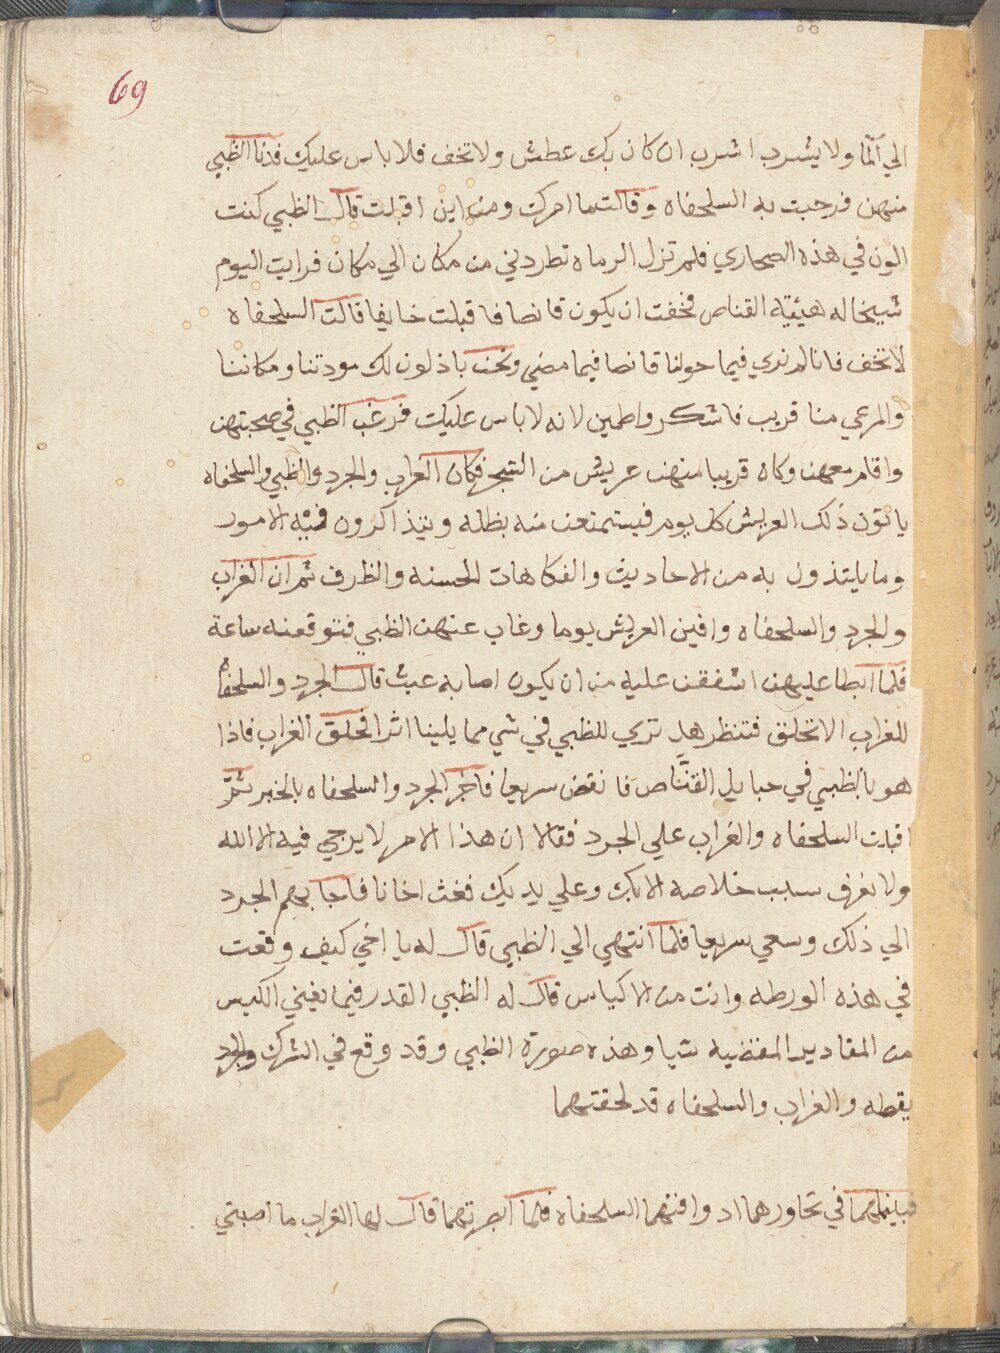 69
الي المآ ولا يشرب اشرب ان كان بك عطش ولا تخف فلا باس عليك فدنا الظبي
منهن فرحبت به السلحفاه وقالت ما امرك ومن اين اقبلت قال الظبي كنت
الون في هذه الصحاري فلم تزل الرماه تطردني من مكان الي مكان فرايت اليوم
شيخا له هيئية القناص فخفت ان يكون قانصا فاقبلت خايفا قالت السلحفاه
لا تخف فانا لم نري فيما حولنا قانصا فيما مضي ونحن باذلون لك مودتنا ومكاننا
والمرعي منا قريب فاشكر واطمين لانه لا باس عليك فرغب الظبي في صحبتهن
واقام معهن وكان قريبا منهن عريش من الشجر فكان الغراب والجرد والظبي والسلحفاه
ياتون ذلك العريش كل يوم فيستمتعن منه بظله ويتذاكرون فيه الامور
وما يلتذون به من الاحاديث والفكاهات الحسنه والظرف ثم ان الغراب
والجرد والسلحفاه وافين العريش يوما وغاب عنهن الظبي فتوقعنه ساعة
فلما ابطا عليهن اشفقن عليه من ان يكون اصابه عبث قال الجرد والسلحفاه
للغراب الا تحلق فتنظر هل تري للظبي في شي مما يلينا اثرا فحلق الغراب فاذا
هو بالظبي في حبايل القنّاص فانقض سريعا فاخبر الجرد والسلحفاه بالخبر ثم
اقبلت السلحفاه والغراب علي الجرد فقالا ان هذا الامر لا يرجي فيه الا الله
ولا نعرف سبب خلاصه الا بك وعلي يديك فغث اخانا فاجابهم الجرد
الي ذلك وسعي سريعا فلما انتهي الي الظبي قال له يا اخي كيف وقعت
في هذه الورطه وانت من الاكياس قال له الظبي القدر فيما يغني الكيس
من المقادير المقضيه شيا وهذه صورة الظبي وقد وقع في الشرك والجرد
يقطه والغراب والسلحفاه قد لحقتهما
فبينما هما في تحاورهما اد وافتهما السلحفاه فلما ابصرتهما قال لها الغراب ما اصبتي